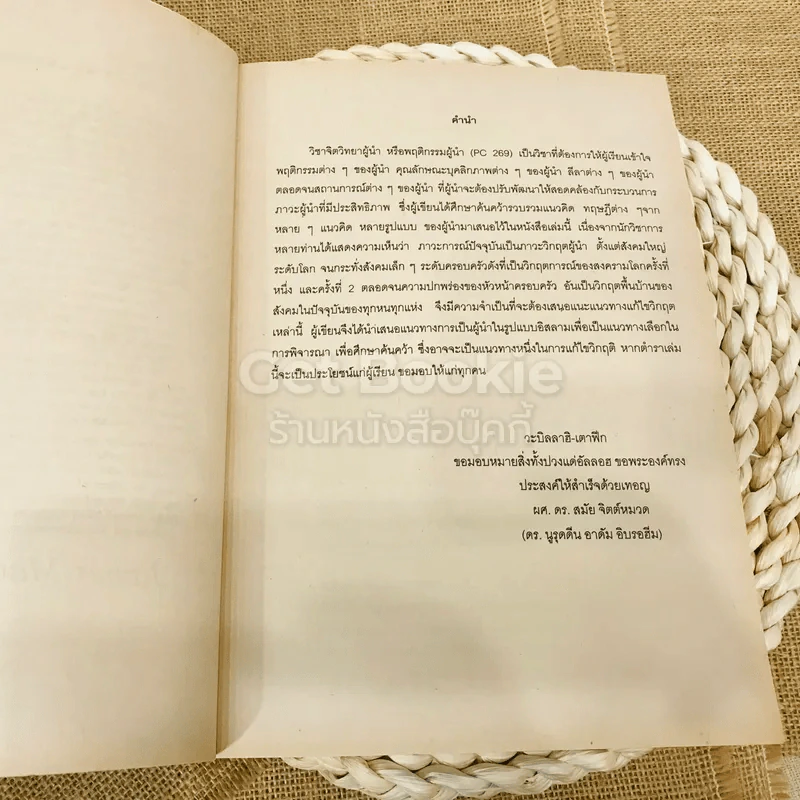 คำนำ
วิชาจิตวิทยาผู้นำ หรือพฤติกรรมผู้นำ (PC 269) เป็นวิชาที่ต้องการให้ผู้เรียนเข้าใจ
พฤติกรรมต่าง ๆ ของผู้นำ คุณลักษณะบุคลิกภาพต่าง ๆ ของผู้นำ ลีลาต่าง ๆ ของผู้นำ
ตลอดจนสถานการณ์ต่าง ๆ ของผู้นำ ที่ผู้นำจะต้องปรับพัฒนาให้สอดคล้องกับกระบวนการ
ภาวะผู้นำที่มีประสิทธิภาพ ซึ่งผู้เขียนได้ศึกษาค้นคว้ารวบรวมแนวคิด ทฤษฎีต่าง ๆจาก
หลาย ๆ แนวคิด หลายรูปแบบ ของผู้นำมาเสนอไว้ในหนังสือเล่มนี้ เนื่องจากนักวิชาการ
หลายท่านได้แสดงความเห็นว่า ภาวะการณ์ปัจจุบันเป็นภาวะวิกฤตผู้นำ ตั้งแต่สังคมใหญ่
ระดับโลก จนกระทั่งสังคมเล็ก ๆ ระดับครอบครัวดังที่เป็นวิกฤตการณ์ของสงครามโลกครั้งที่
หนึ่ง และครั้งที่ 2 ตลอดจนความปกพร่องของหัวหน้าครอบครัว อันเป็นวิกฤตพื้นบ้านของ
สังคมในปัจจุบันของทุกหนทุกแห่ง จึงมีความจำเป็นที่จะต้องเสนอแนะแนวทางแก้ไขวิกฤต
เหล่านี้ ผู้เขียนจึงได้นำเสนอแนวทางการเป็นผู้นำในรูปแบบอิสลามเพื่อเป็นแนวทางเลือกใน
การพิจารณา เพื่อศึกษาค้นคว้า ซึ่งอาจจะเป็นแนวทางหนึ่งในการแก้ไขวิกฤติ หากตำราเล่ม
นี้จะเป็นประโยชน์แก่ผู้เรียน ขอมอบให้แก่ทุกคน
Get Bookie
ร้านหนังสือบุ๊คกี้
วะบิลลาฮิ-เตาฟีก
ขอมอบหมายสิ่งทั้งปวงแด่อัลลอฮ ขอพระองค์ทรง
ประสงค์ให้สำเร็จด้วยเทอญ
ผศ. ดร. สมัย จิตต์หมวด
(ดร. นูรุดดีน อาดัม อิบรอฮีม)